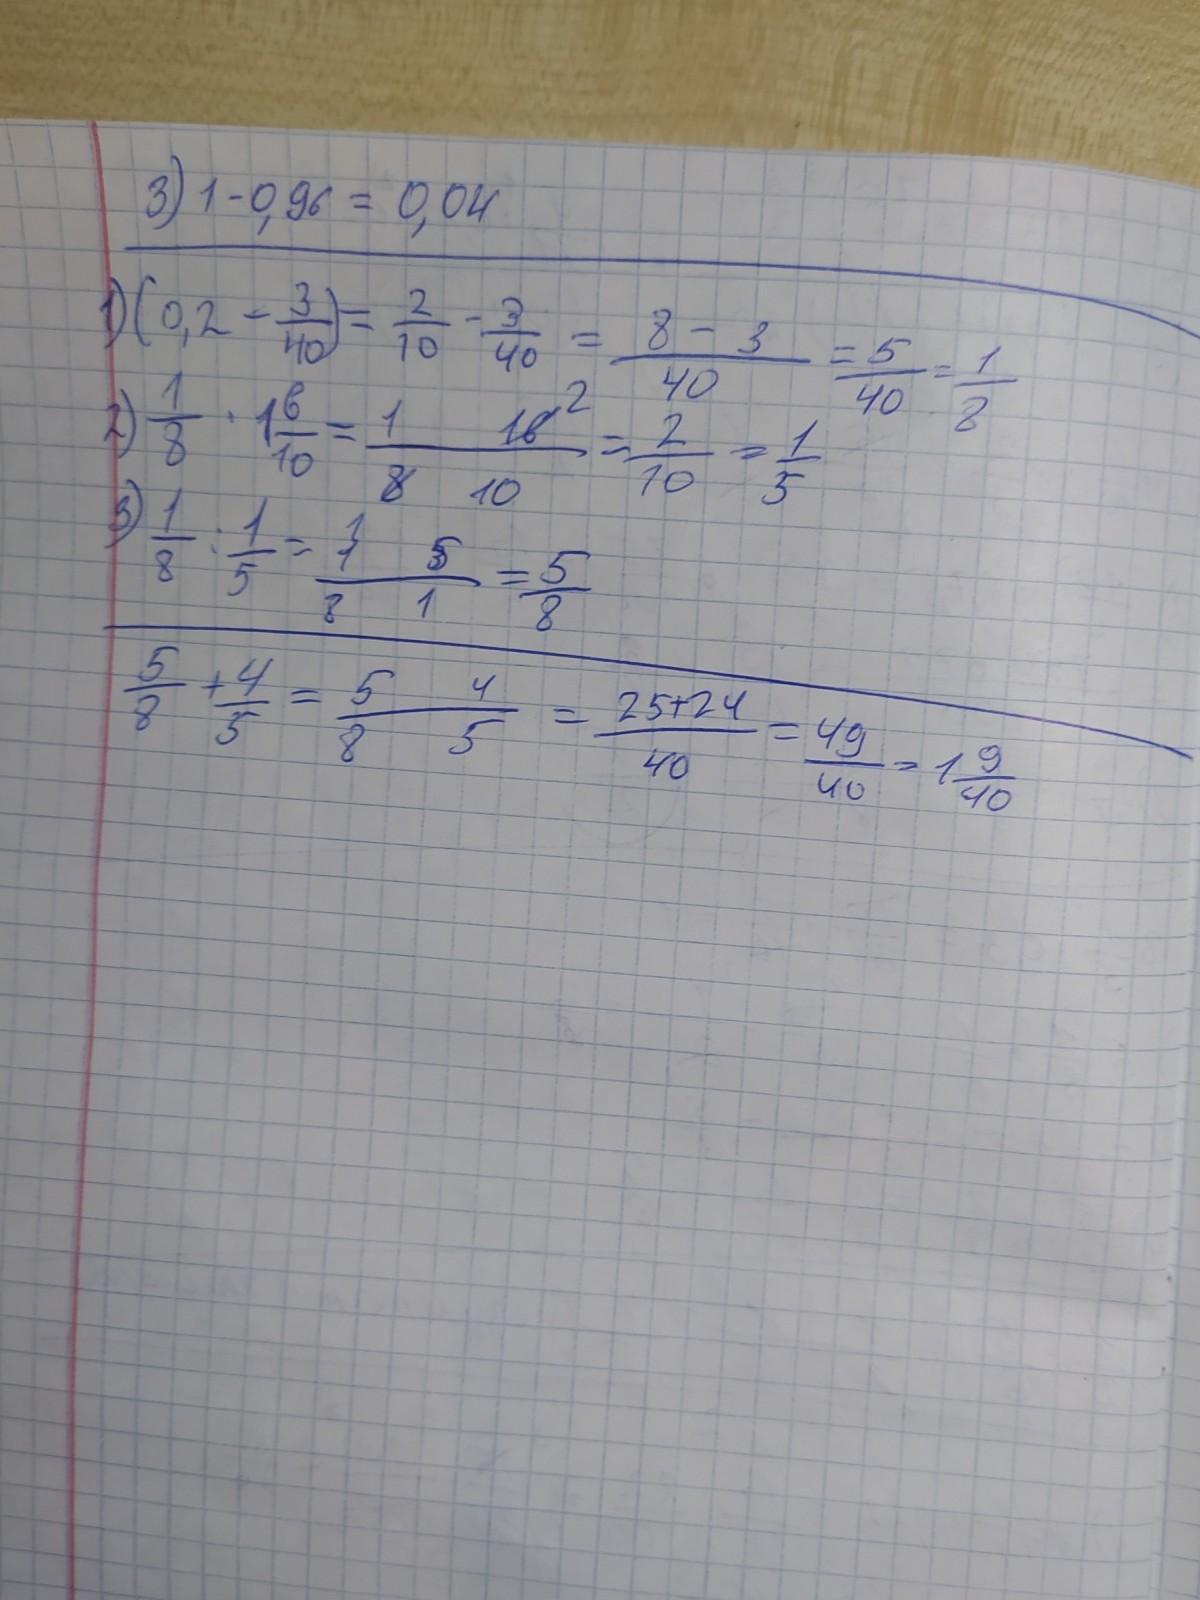 3) 1 - 0,96 = 0,04
1) (0,2 - 3/40) = 2/10 - 3/40 = 8 - 3/40 = 5/40 = 1/8
2) 1/8 · 1 6/10 = 1 16 2/8 10 = 2/10 = 1/5
3) 1/8 : 1/5 = 1 5/8 1 = 5/8
5/8 + 4/5 = 5 4/8 5 = 25+24/40 = 49/40 = 1 9/40